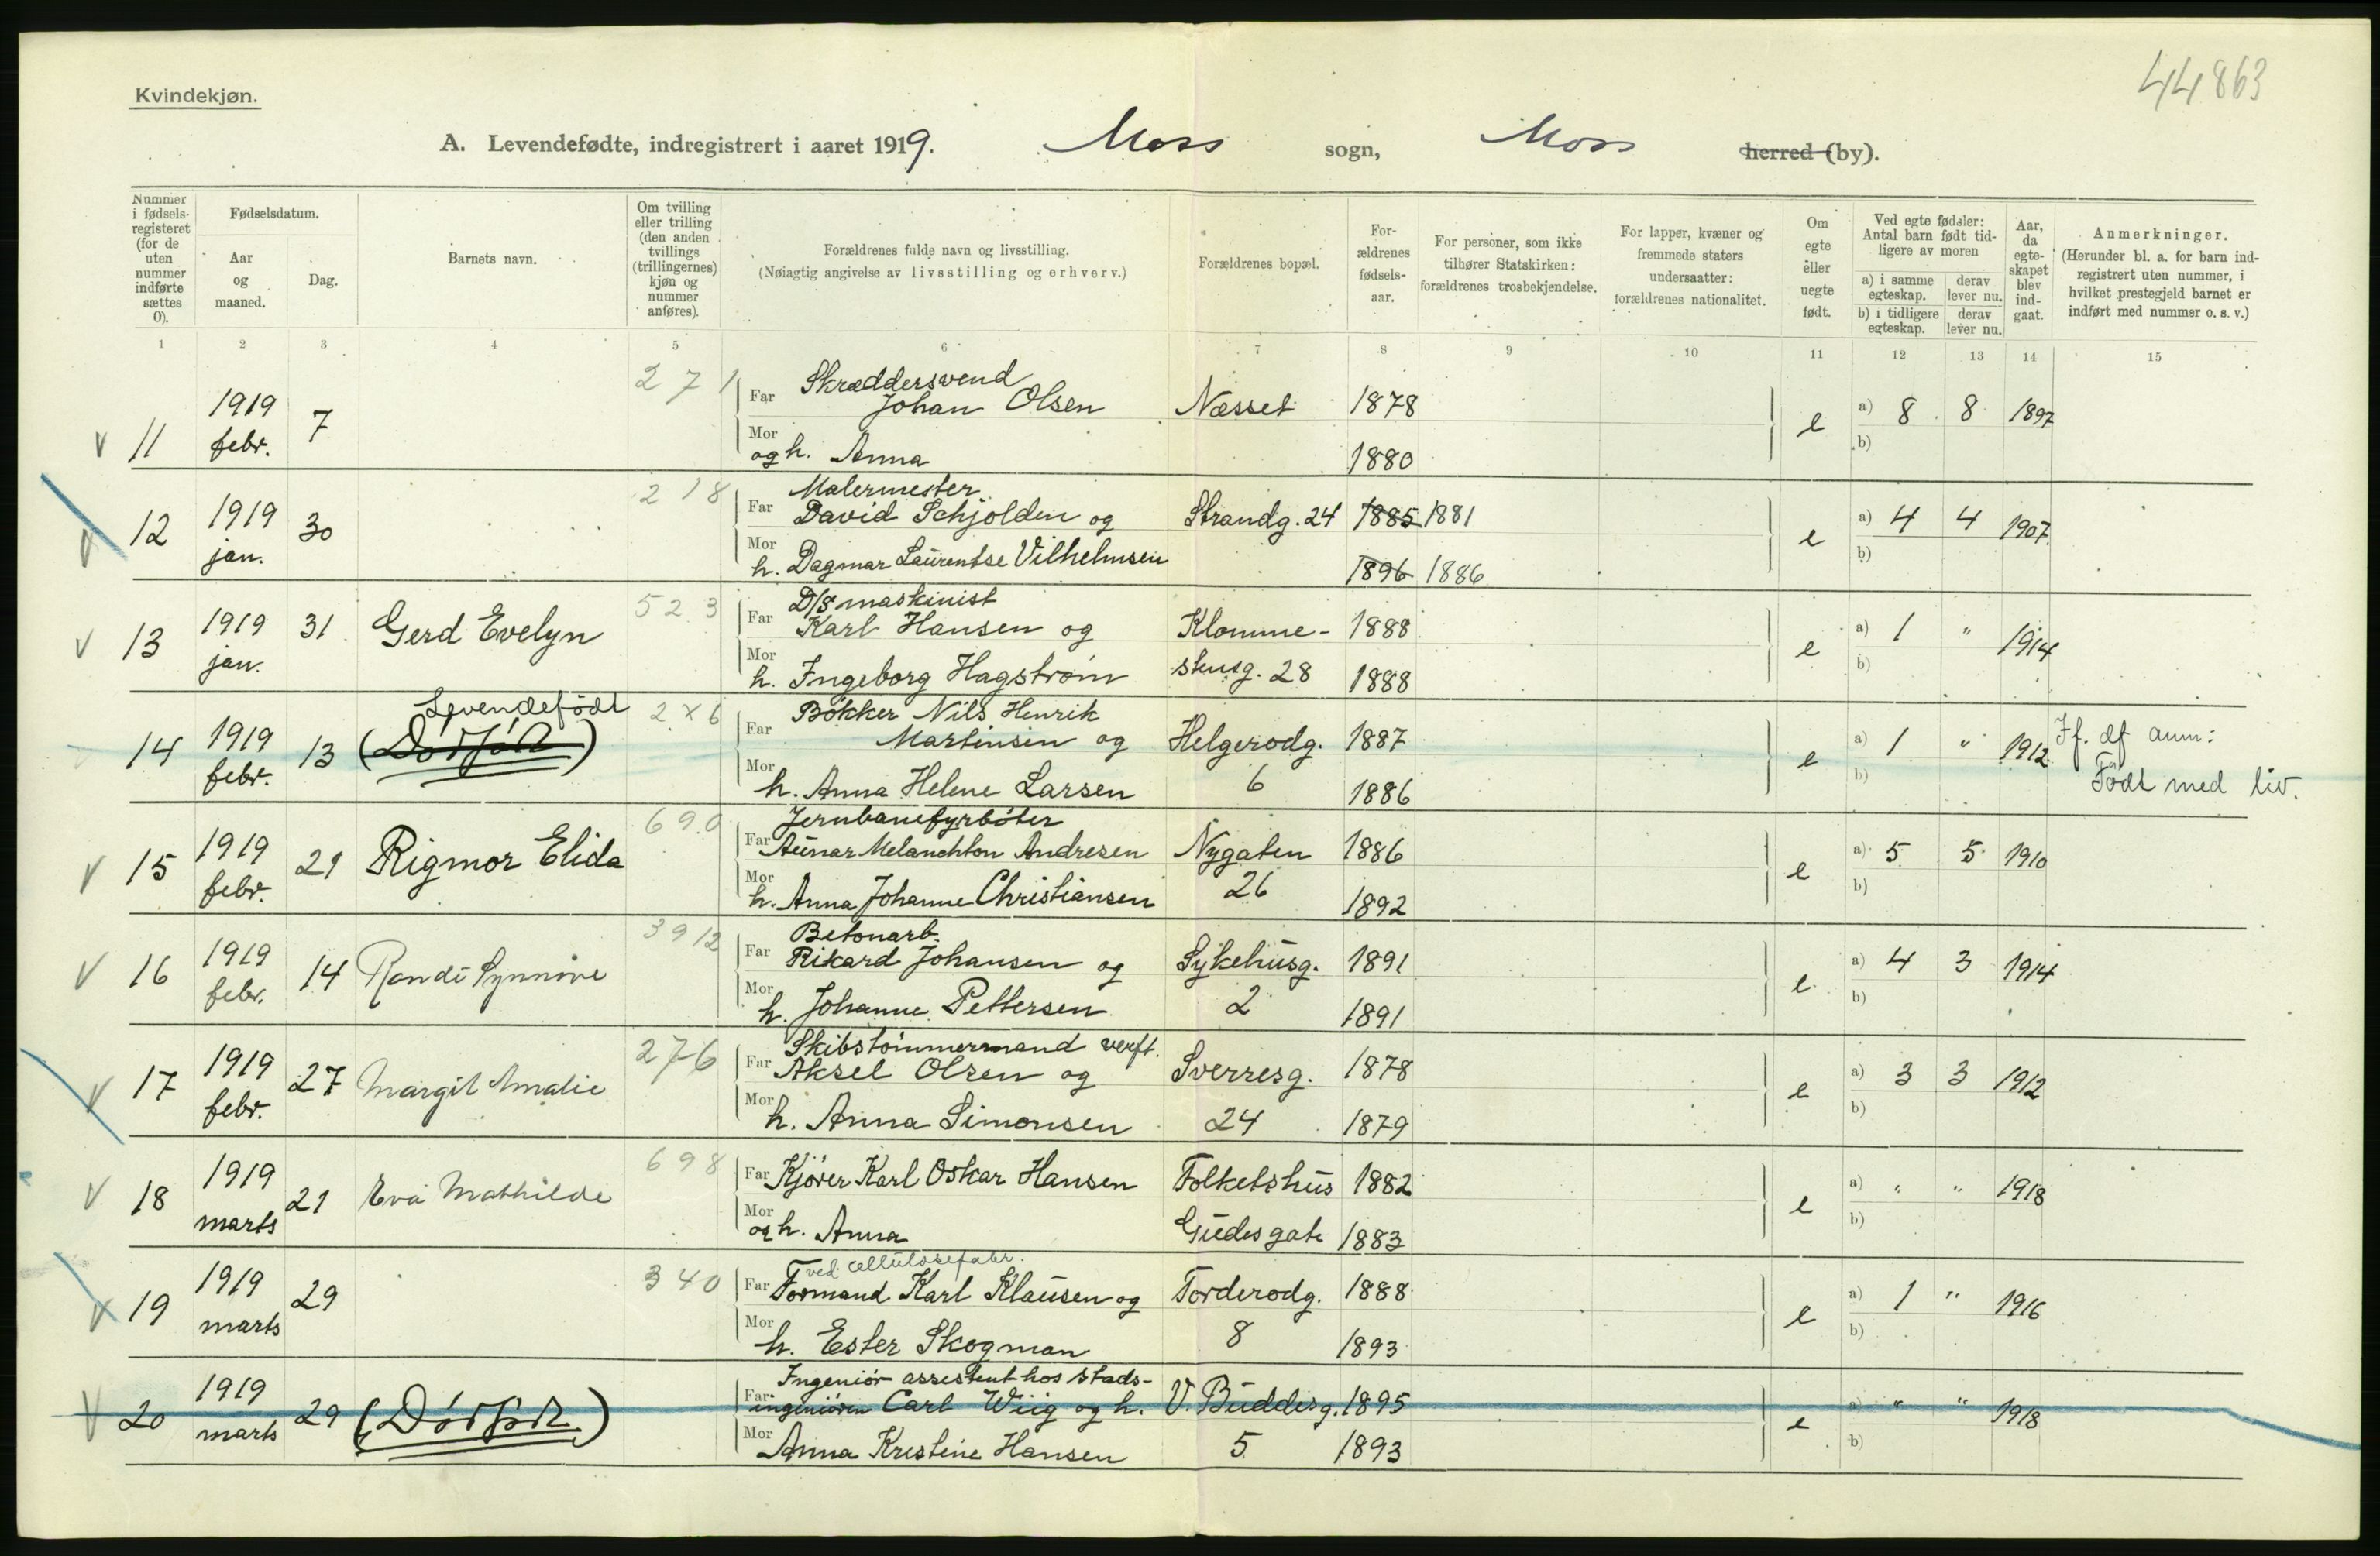 44863
Kvindekjøn.
A. Levendefødte, indregistrert i aaret 1919. Moss sogn, Moss herred (by).
Nummer i fødselsregisteret (for de uten nummer indførte sættes 0).
Fødselsdatum.
Aar og maaned.
Dag.
Barnets navn.
Om tvilling eller trilling (den anden tvillings (trillingernes) kjøn og nummer anføres).
Forældrenes fulde navn og livsstilling.
(Nøiagtig angivelse av livsstilling og erhverv.)
Forældrenes bopæl.
Forældrenes fødselsaar.
For personer, som ikke tilhører Statskirken: forældrenes trosbekjendelse.
For lapper, kvæner og fremmede staters undersaatter: forældrenes nationalitet.
Om egte eller uegte født.
Ved egte fødsler: Antal barn født tidligere av moren
a) i samme egteskap. derav lever nu.
b) i tidligere egteskap. derav lever nu.
Aar, da egteskapet blev indgaat.
Anmerkninger.
(Herunder bl. a. for barn indregistrert uten nummer, i hvilket prestegjeld barnet er indført med nummer o. s. v.)
1 2 3 4 5 6 7 8 9 10 11 12 13 14 15
271 Skræddersvend
V 11 1919 febr. 7 Far Johan Olsen Næsset 1878 e a) 8 8 1897
Mor og h. Anna 1880 b)
218 Malermester
V 12 1919 jan. 30 Far David Schjolden og Strandg. 24 1885 1881 e a) 4 4 1907
Mor h. Dagmar Laurentse Vilhelmsen 1896 1886 b)
523 D/S maskinist
V 13 1919 jan. 31 Gerd Evelyn Far Karl Hansen og Klomme- 1888 e a) 1 " 1914
Mor h. Ingeborg Hagstrøm stensg. 28 1888 b)
Levendefödt 2x6 Bökker Nils Henrik
14 1919 febr. 13 (Dödfödt) Far Martinsen og Helgerodg. 1887 e a) 1 " 1912 Jf. df anm:
Mor h. Anna Helene Larsen 6 1886 b) Födt med liv.
690 Jernbanefyrböter
V 15 1919 febr. 21 Rigmor Elida Far Aünar Melanchton Andresen Nygaten 1886 e a) 5 5 1910
Mor h. Anna Johanne Christiansen 26 1892 b)
3912 Betonarb.
V 16 1919 febr. 14 Randi Synnöve Far Rikard Johansen og Sykehusg. 1891 e a) 4 3 1914
Mor h. Johanne Pettersen 2 1891 b)
276 Skibstömmermand verft.
V 17 1919 febr. 27 Margit Amalie Far Aksel Olsen og Sverresg. 1878 e a) 3 3 1912
Mor h. Anna Simonsen 24 1879 b)
V 18 1919 marts 21 Eva Mathilde 698 Far Kjörer Karl Oskar Hansen Folketshus 1882 e a) " " 1918
Mor og h. Anna Gudes gate 1883 b)
ved cellulosefabr.
19 1919 marts 29 340 Far Formand Karl Klausen og Torderodg. 1888 e a) 1 " 1916
Mor h. Ester Skogman 8 1893 b)
Ingeniör assestent hos stads-
V 20 1919 marts 29 (Dödfödt) Far ingeniören Carl Wiig og h. V. Buddesg. 1895 e a) " " 1918
Mor Anna Kristine Hansen 5 1893 b)